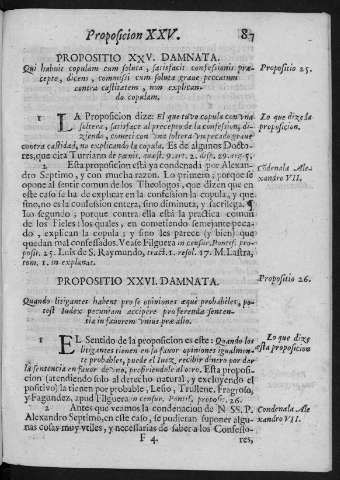 Proposicion XXV. 87
PROPOSITIO XXV. DAMNATA.
Qui habuit copulam cum soluta, satisfacit confessionis præ-
cepto, dicens, commisi cum soluta graue peccatum
contra castitatem, non explican-
do copulam.
Propositio 25.
1 LA Proposicion dize: El que tuvo copula con vna
soltera, satisface al precepto de la confession, di-
ziendo, cometi con vna soltera vn pecado graue
contra castidad, no explicando la copula. Es de algunos Docto-
res, que cita Turriano de pœnit. quæst. 9. art. 2. disp. 29. art. 5.
Lo que dize la
proposicion.
2 Esta proposicion està ya condenada por Alexan-
dro Septimo, y con mucha razon. Lo primero; porque se
opone al sentir comun de los Theologos, que dizen que en
este caso se ha de explicar en la confesion la copula, y que,
sino, no es la confesion entera, sino diminuta, y sacrilega.
lo segundo; porque contra ella està la practica comun
de los Fieles: los quales, en cometiendo semejante peca-
do, explican la copula; y sino les parece (y bien) que
quedan mal confessados. Vease Filguera in censur. Pontif. pro-
posit. 25. Luis de S. Raymundo, tract. 1. resol. 17. M. Lastra,
tom. 1. in explanat.
Cõdenala Ale-
xandro VII.
PROPOSITIO XXVI. DAMNATA.
Propositio 26.
Quando litigantes habent pro se opiniones æquè probabiles, po-
test Iudex pecuniam accipere pro ferenda senten-
tia in fauorem vnius præ alio.
1 EL Sentido de la proposicion es este: Quando los
litigantes tienen en la favor opiniones igualmen-
te probables, puede el Iuez, recibir dinero por dar
la sentencia en favor de vno, prefiriendole al otro. Esta proposi-
cion (atendiendo solo al derecho natural, y excluyendo el
positivo) la tienen por probable, Lesio, Trullenc, Fragoso,
y Fagundez, apud Filguera in censur. Pontif. proposit. 26.
Lo que dize
esta proposicion
2 Antes que vamos la condenacion de N. SS. P.
Alexandro Septimo, en este caso, se pudieran suponer algu-
nas cosas muy vtiles, y necessarias de saber a los Confesso-
Condenala Ale
xandro VII.
F 4. res,